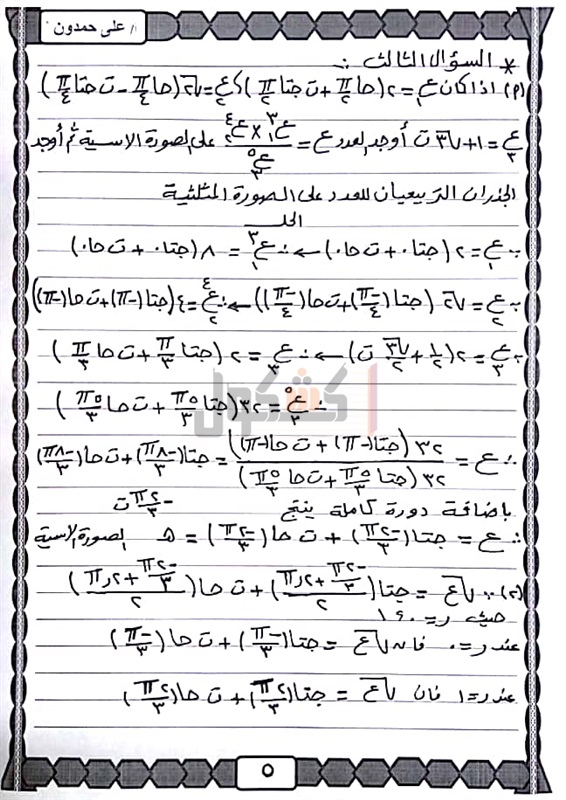 / على حمدون
* السؤال الثالث :
(٢) اذا كان ع١ = ٢(حا π/٢ + ت جتا π/٢) كا ع٢ = √٢(حا π/٤ - ت حتا π/٤)
ع٣ = ١ + √٣ ت أوجد العدد ع = (ع١^٣ × ع٢^٤)/ع٣^٥ على الصورة الاسية ثم أوجد
الجذران التربيعيان للعدد على الصورة المثلثية
الحل
∵ ع١ = ٢ (جتا ٠ + ت حا ٠) ← ∴ ع١^٣ = ٨ (جتا ٠ + ت حا ٠)
∵ ع٢ = √٢ (جتا(-π/٤) + ت حا(-π/٤)) ← ∴ ع٢^٤ = ٤(جتا(-π) + ت حا(-π))
∵ ع٣ = ٢(١/٢ + √٣/٢ ت) ← ∴ ع٣ = ٢ (جتا π/٣ + ت حا π/٣)
∴ ع٣^٥ = ٣٢ (جتا ٥π/٣ + ت حا ٥π/٣)
كشكول
∴ ع = ٣٢(جتا(-π) + ت حا(-π)) / ٣٢(جتا ٥π/٣ + ت حا ٥π/٣) = جتا(-٨π/٣) + ت حا(-٨π/٣)
باضافة دورة كاملة ينتج
∴ ع = جتا(-٢π/٣) + ت حا(-٢π/٣) = هـ^(-٢π/٣ ت) الصورة الاسية
(٢) ∵ √ع = جتا((-٢π/٣ + ٢رπ)/٢) + ت حا((-٢π/٣ + ٢رπ)/٢)
حيث ر = ٠ ، ١
عند ر = ٠ فان √ع = جتا(-π/٣) + ت حا(-π/٣)
عند ر = ١ فان √ع = جتا(٢π/٣) + ت حا(٢π/٣)
٥